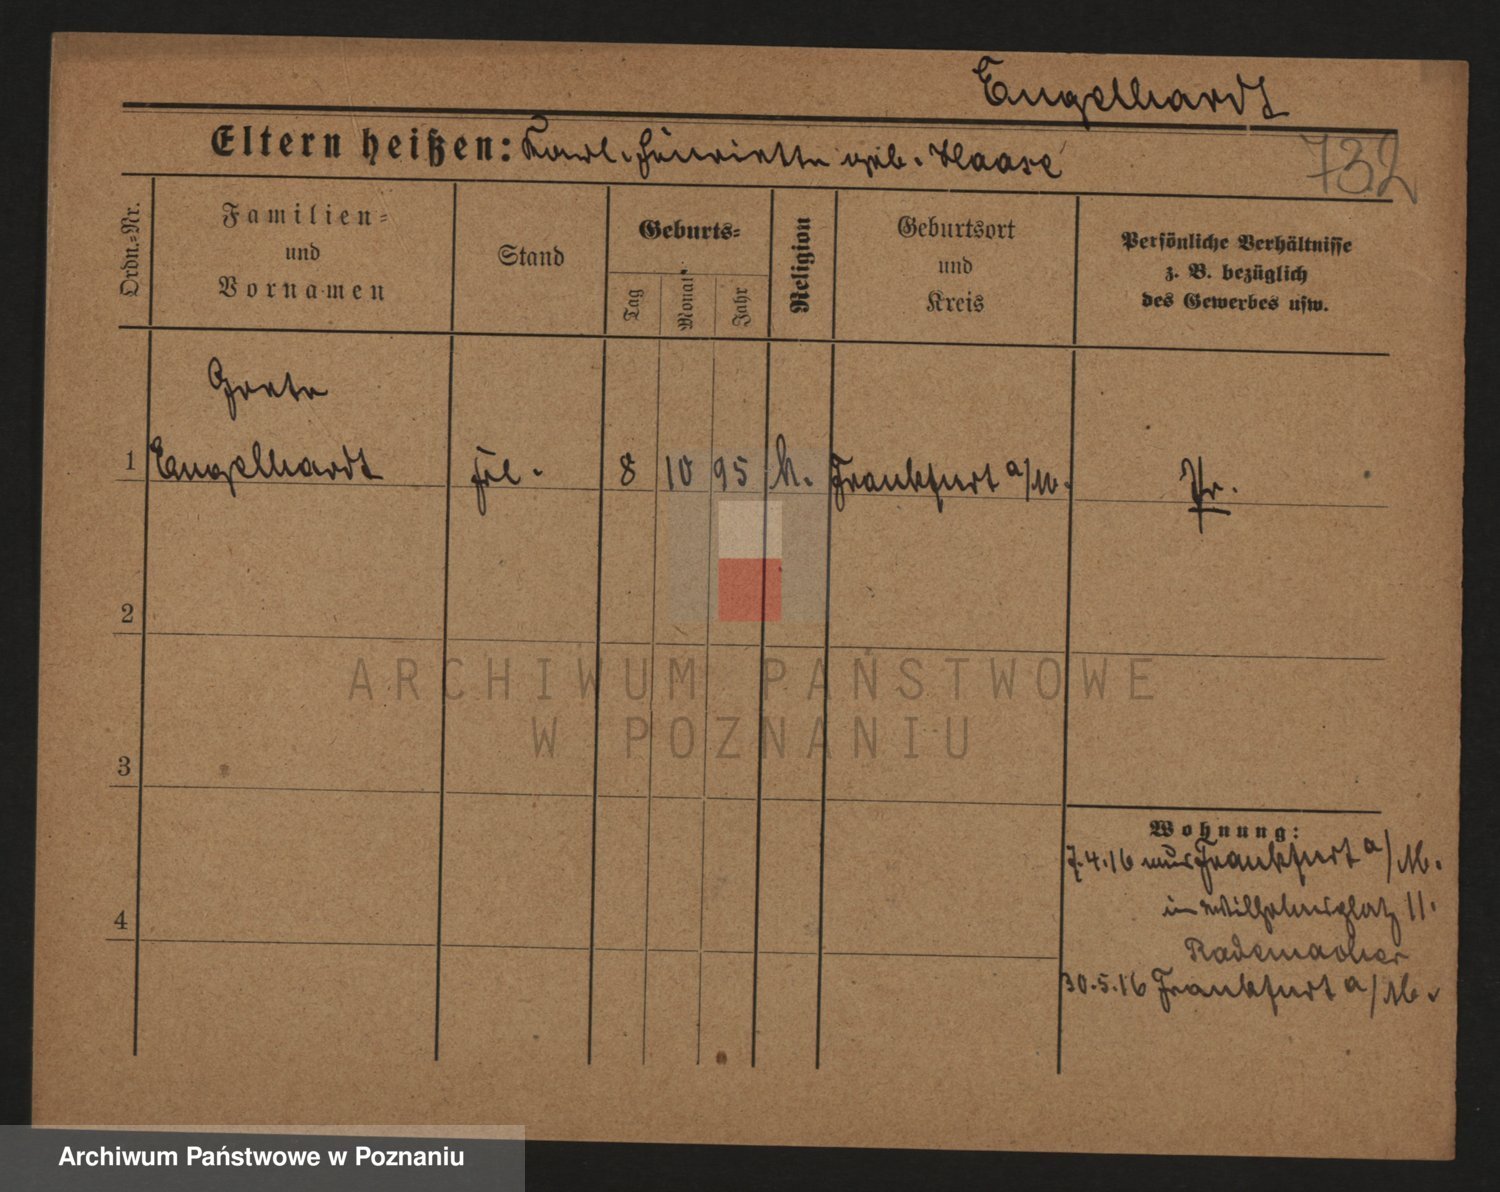 Engelhardt
Eltern heißen: Karl. Henriette geb. Haase
732
Ordn.=Nr.
Familien=
und
Vornamen
Stand
Geburts=
Tag
Monat
Jahr
Religion
Geburtsort
und
Kreis
Persönliche Verhältnisse
z. B. bezüglich
des Gewerbes usw.
Grete
1 Engelhardt Frl. 8 10 95 k. Frankfurt a/M. Pr.
2
ARCHIWUM PAŃSTWOWE
W POZNANIU
3
Wohnung:
7.4.16 aus Frankfurt a/M.
in Wilhelmsplatz 11.
Rademacher
4
30.5.16 Frankfurt a/M.
Archiwum Państwowe w Poznaniu